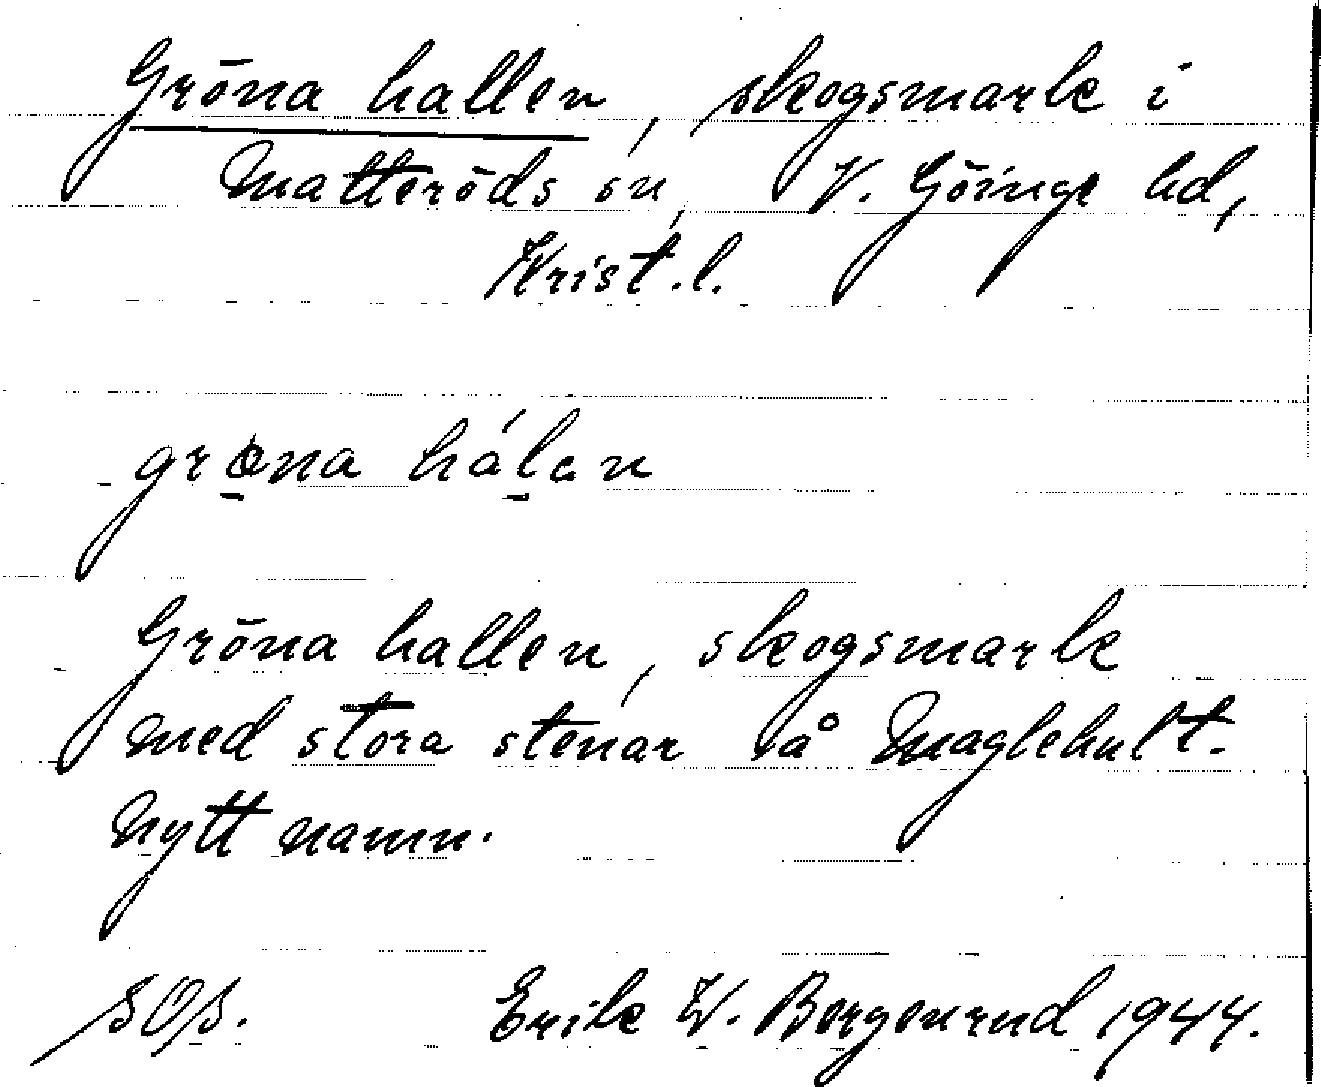 Gröna hallen, skogsmark i
Matteröds sn, V. Göinge hd,
Krist. l.
gro̱na háḻen
Gröna hallen, skogsmark
med stora stenar på Maglehult.
Nytt namn.
Erik W. Borgenrud 1944.